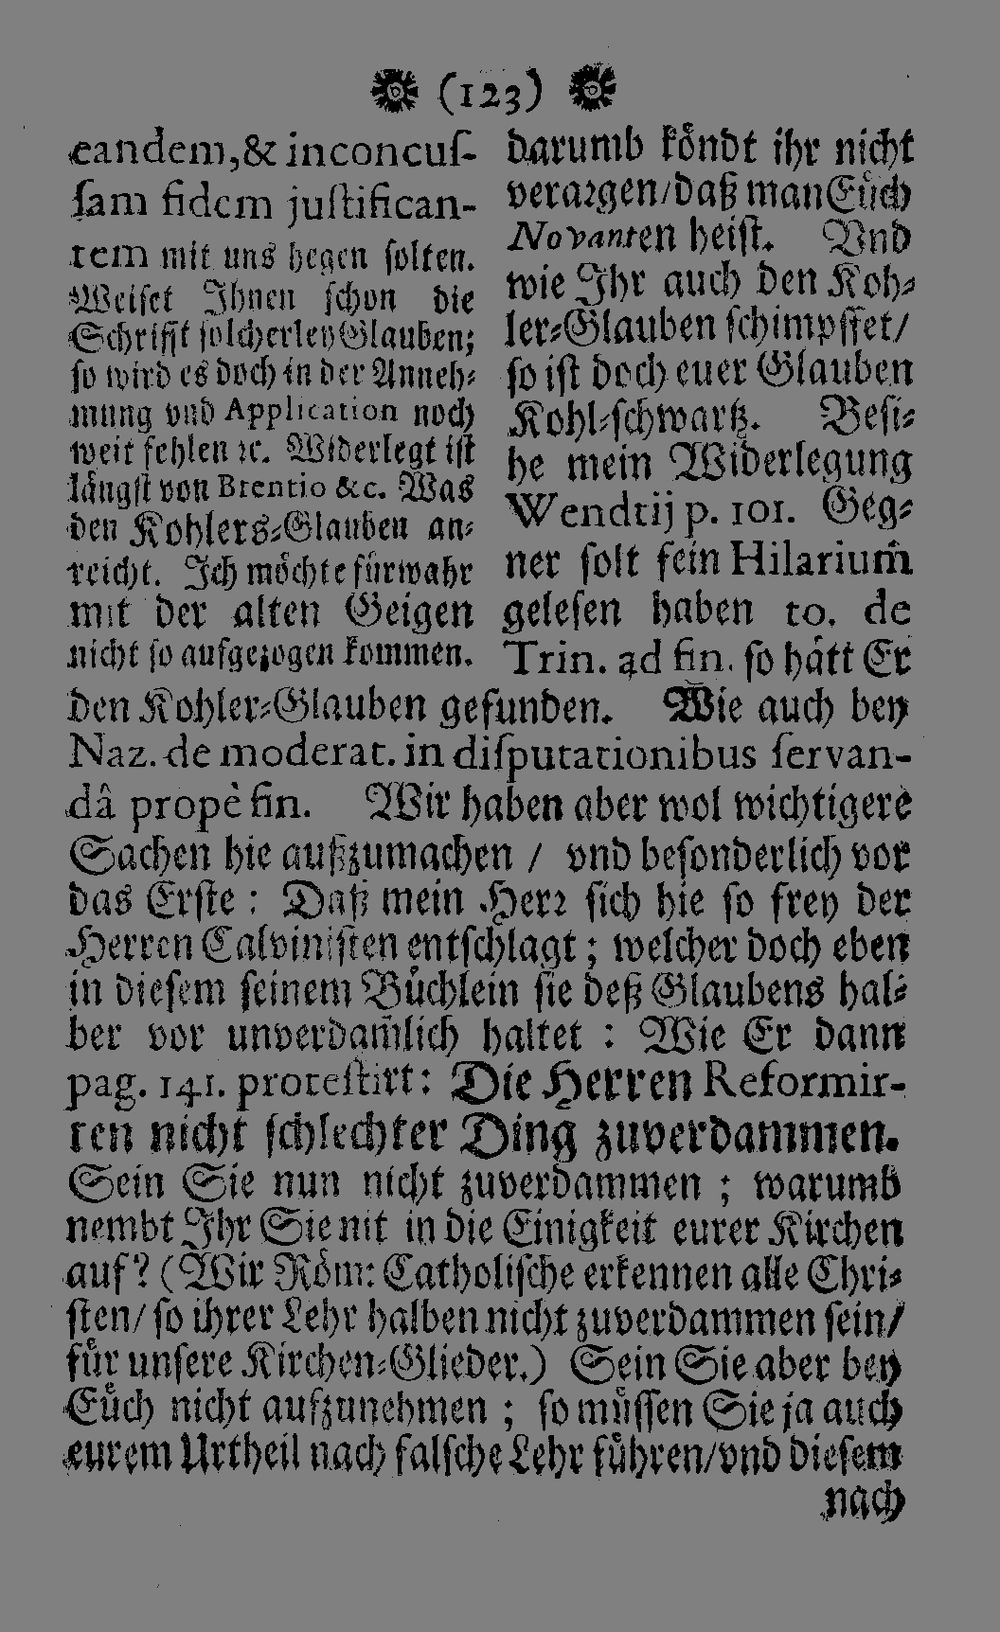 (123)
eandem, & inconcuſ-
ſam fidem juſtifican-
tem mit uns hegen ſolten.
Weiſet Ihnen ſchon die
Schrifft ſolcherley Glauben;
ſo wird es doch in der Anneh-
mung vnd Application noch
weit fehlen ꝛc. Widerlegt iſt
längſt von Brentio &c. Was
den Kohlers-Glauben an-
reicht. Ich möchte fürwahr
mit der alten Geigen
nicht ſo aufgezogen kommen.
darumb köndt ihr nicht
verargen/ daß man Euch
Novanten heiſt. Vnd
wie Ihr auch den Koh-
ler-Glauben ſchimpffet/
ſo iſt doch euer Glauben
Kohl-ſchwartz. Beſi-
he mein Widerlegung
Wendtij p. 101. Geg-
ner ſolt fein Hilarium
geleſen haben to. de
Trin. ad fin. ſo hätt Er
den Kohler-Glauben gefunden. Wie auch bey
Naz. de moderat. in diſputationibus ſervan-
dâ propè fin. Wir haben aber wol wichtigere
Sachen hie außzumachen / vnd beſonderlich vor
das Erſte: Daß mein Herꝛ ſich hie ſo frey der
Herren Calviniſten entſchlagt; welcher doch eben
in dieſem ſeinem Büchlein ſie deß Glaubens hal-
ber vor unverdam̃lich haltet: Wie Er dann
pag. 141. proteſtirt: Die Herren Reformir-
ten nicht ſchlechter Ding zuverdammen.
Sein Sie nun nicht zuverdammen; warumb
nembt Ihr Sie nit in die Einigkeit eurer Kirchen
auf? (Wir Röm: Catholiſche erkennen alle Chri-
ſten/ ſo ihrer Lehr halben nicht zuverdammen ſein/
für unſere Kirchen-Glieder.) Sein Sie aber bey
Euch nicht aufzunehmen; ſo müſſen Sie ja auch
eurem Urtheil nach falſche Lehr führen/ vnd dieſem
nach